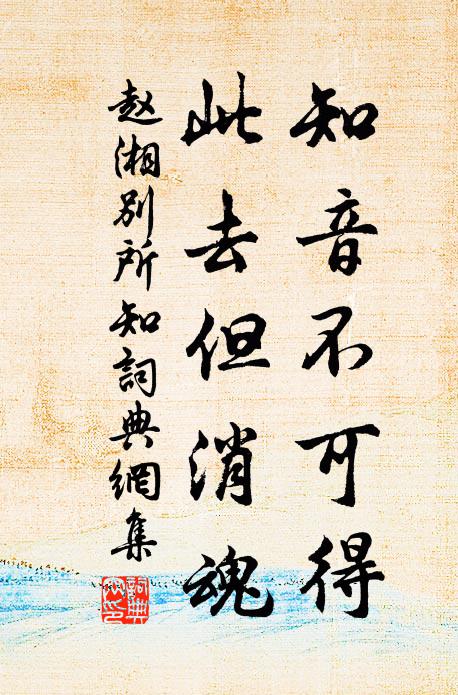 知音不可得
此去但消魂
赵湘别所知詞典網集